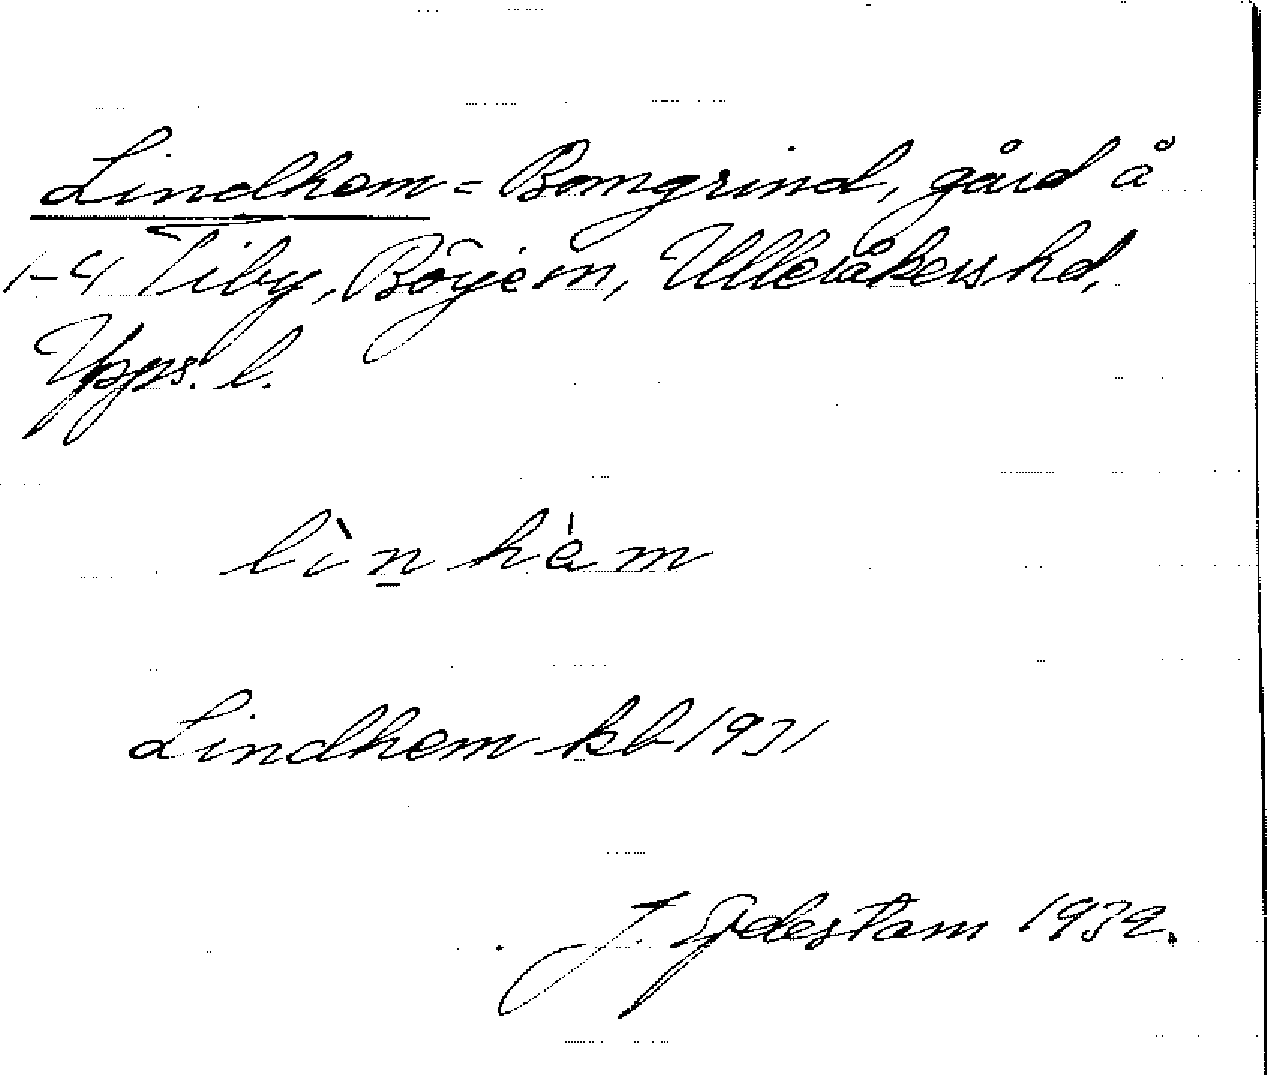 Lindhem = Bomgrind, gård å
1-4 Tiby, Böje sn, Ulleråkers hd,
Upps. l.
lìn hèm
Lindhem kb 1931
J. Ejdestam 1932.